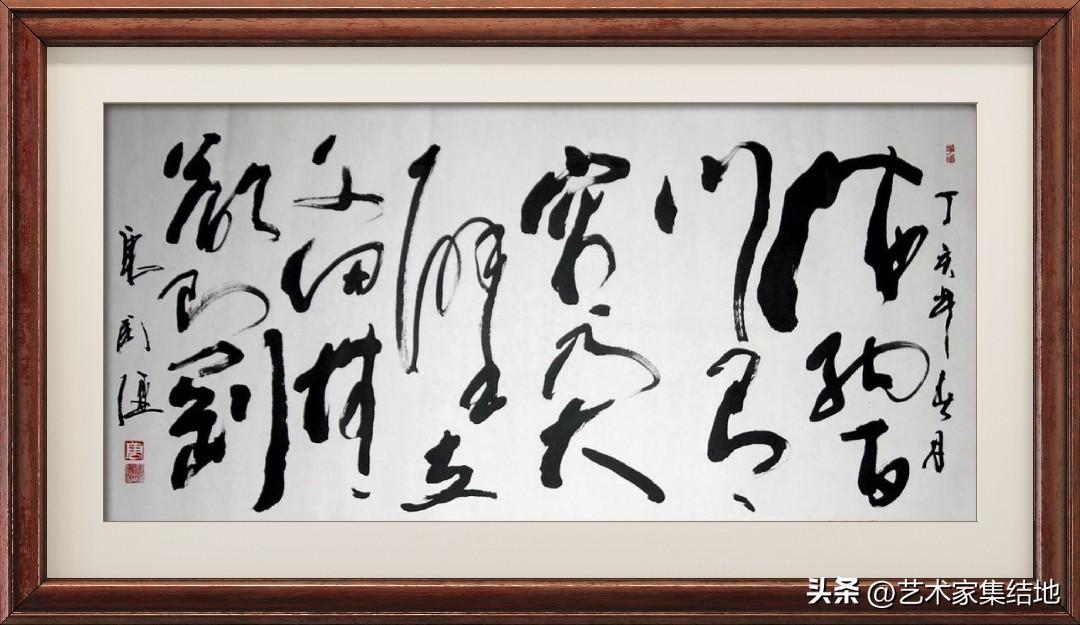 丁亥年春月
海纳百
川有
容乃大
壁立
千仞無
欲则剛
唐
头条 @艺术家集结地